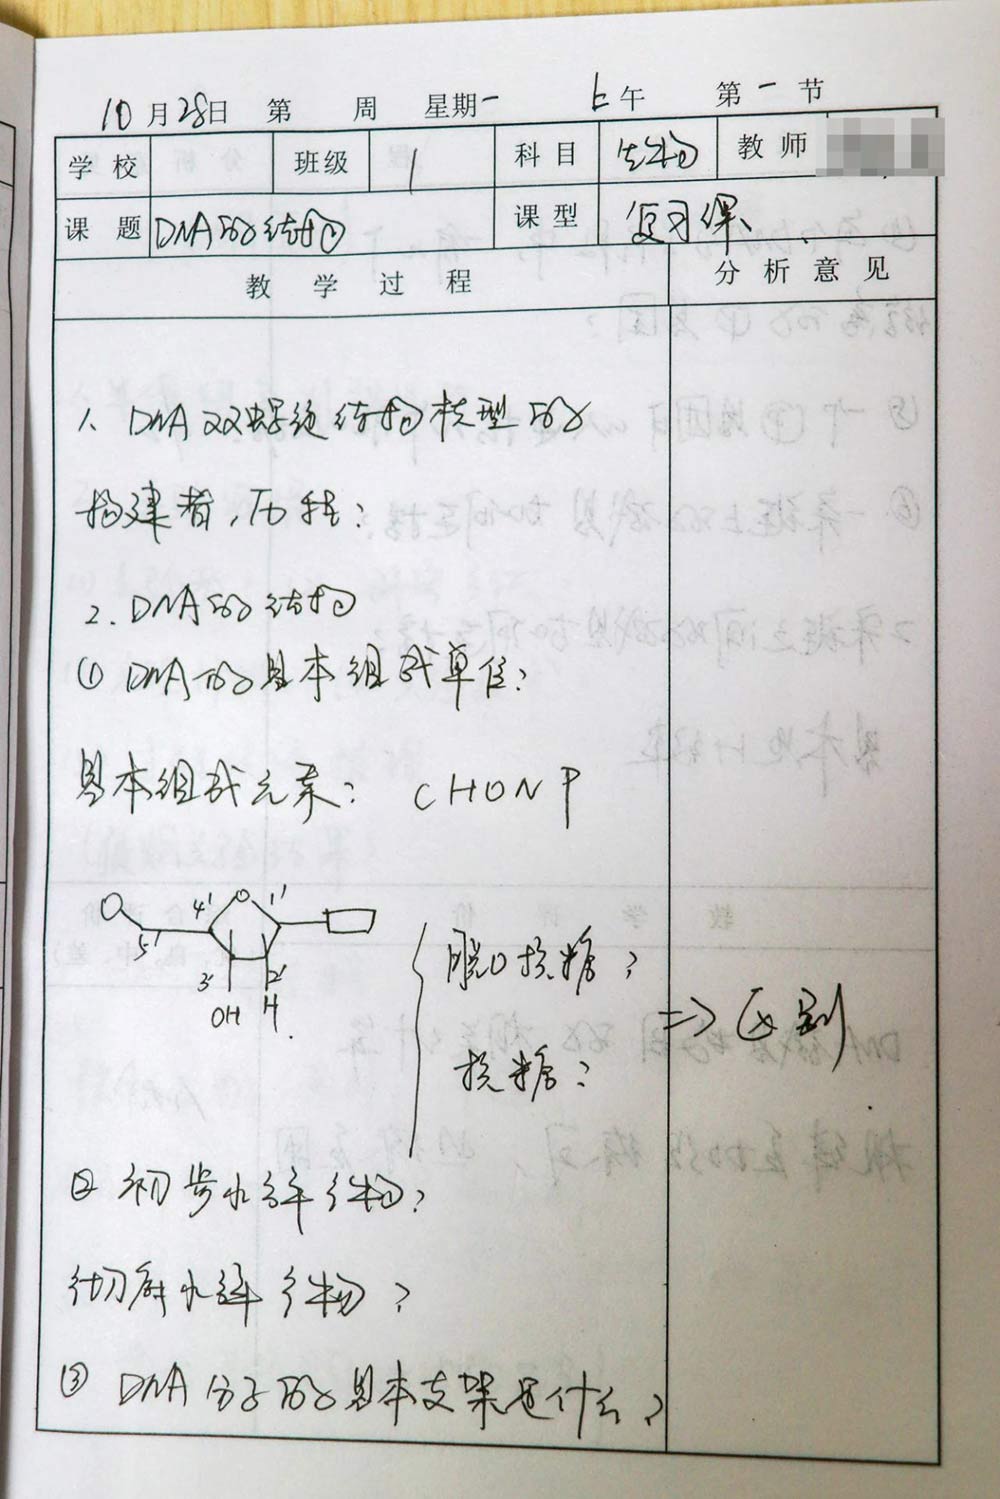 10月28日 第 周 星期一 上午 第一节
学校 班级 1 科目 生物 教师
课题 DNA的结构 课型 复习课
教学过程 分析意见
1. DNA双螺旋结构模型的
构建者,历程?
2. DNA的结构
① DNA的基本组成单位?
基本组成元素? CHONP
O 4' 1'
5' 3' 2'
OH H
脱口核糖?
核糖?
=> 区别
② 初步水解产物?
彻底水解产物?
③ DNA分子的基本支架是什么?